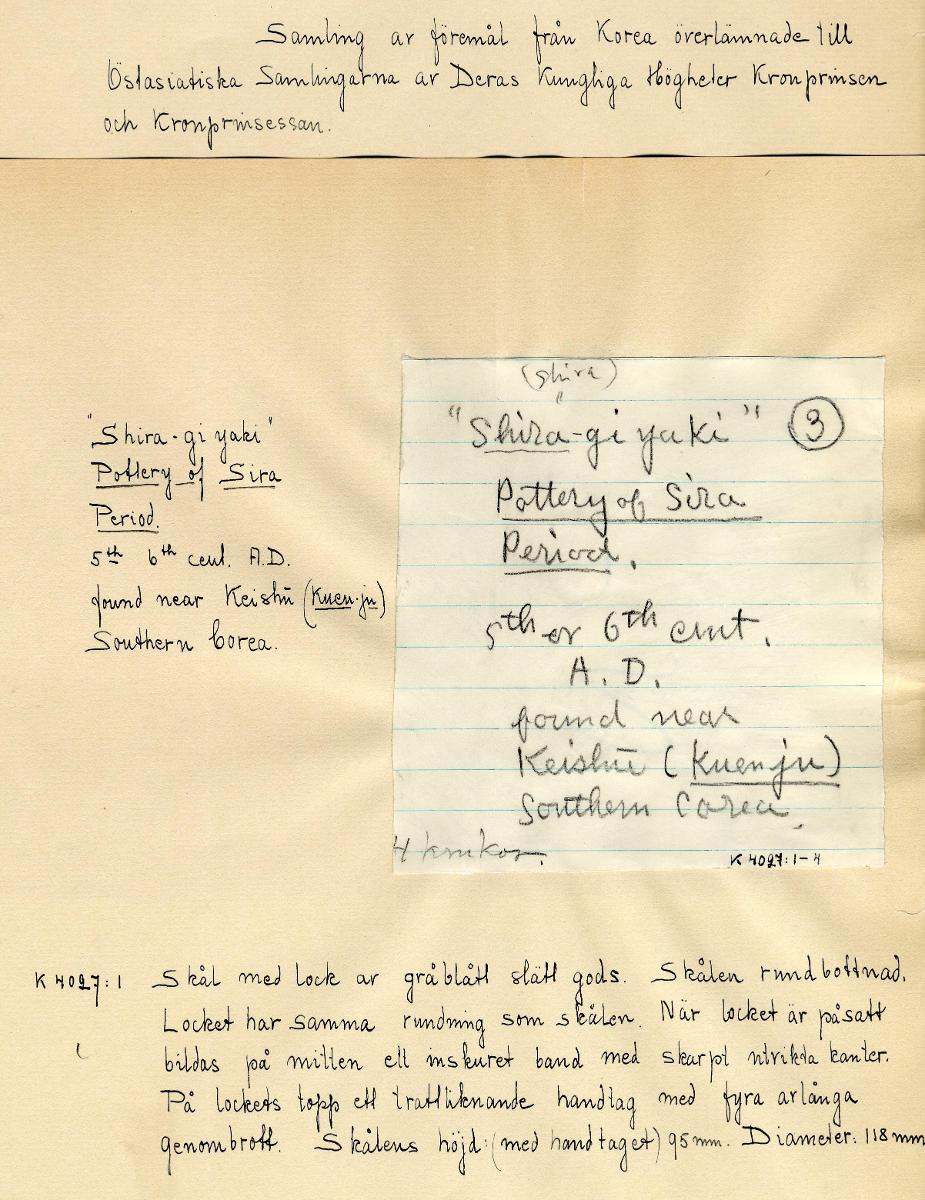 Samling av föremål från Korea överlämnade till
Östasiatiska Samlingarna av Deras Kungliga Högheter Kronprinsen
och Kronprinsessan.
"Shira-gi yaki"
Pottery of Sira
Period.
5th 6th cent. A.D.
found near Keishū (Kuen-ju)
Southern Corea.
(shira)
"Shira-gi yaki" 3
Pottery of Sira
Period.
5th or 6th cent.
A. D.
found near
Keishū (Kuenju)
Southern Corea.
4 krukor.
K 4027:1-4
K 4027:1 Skål med lock av gråblått slätt gods. Skålen rundbottnad.
Locket har samma rundning som skålen. När locket är påsatt
bildas på mitten ett inskuret band med skarpt utvikta kanter.
På lockets topp ett trattliknande handtag med fyra avlånga
genombrott. Skålens höjd: (med handtaget) 95 mm. Diameter: 118 mm